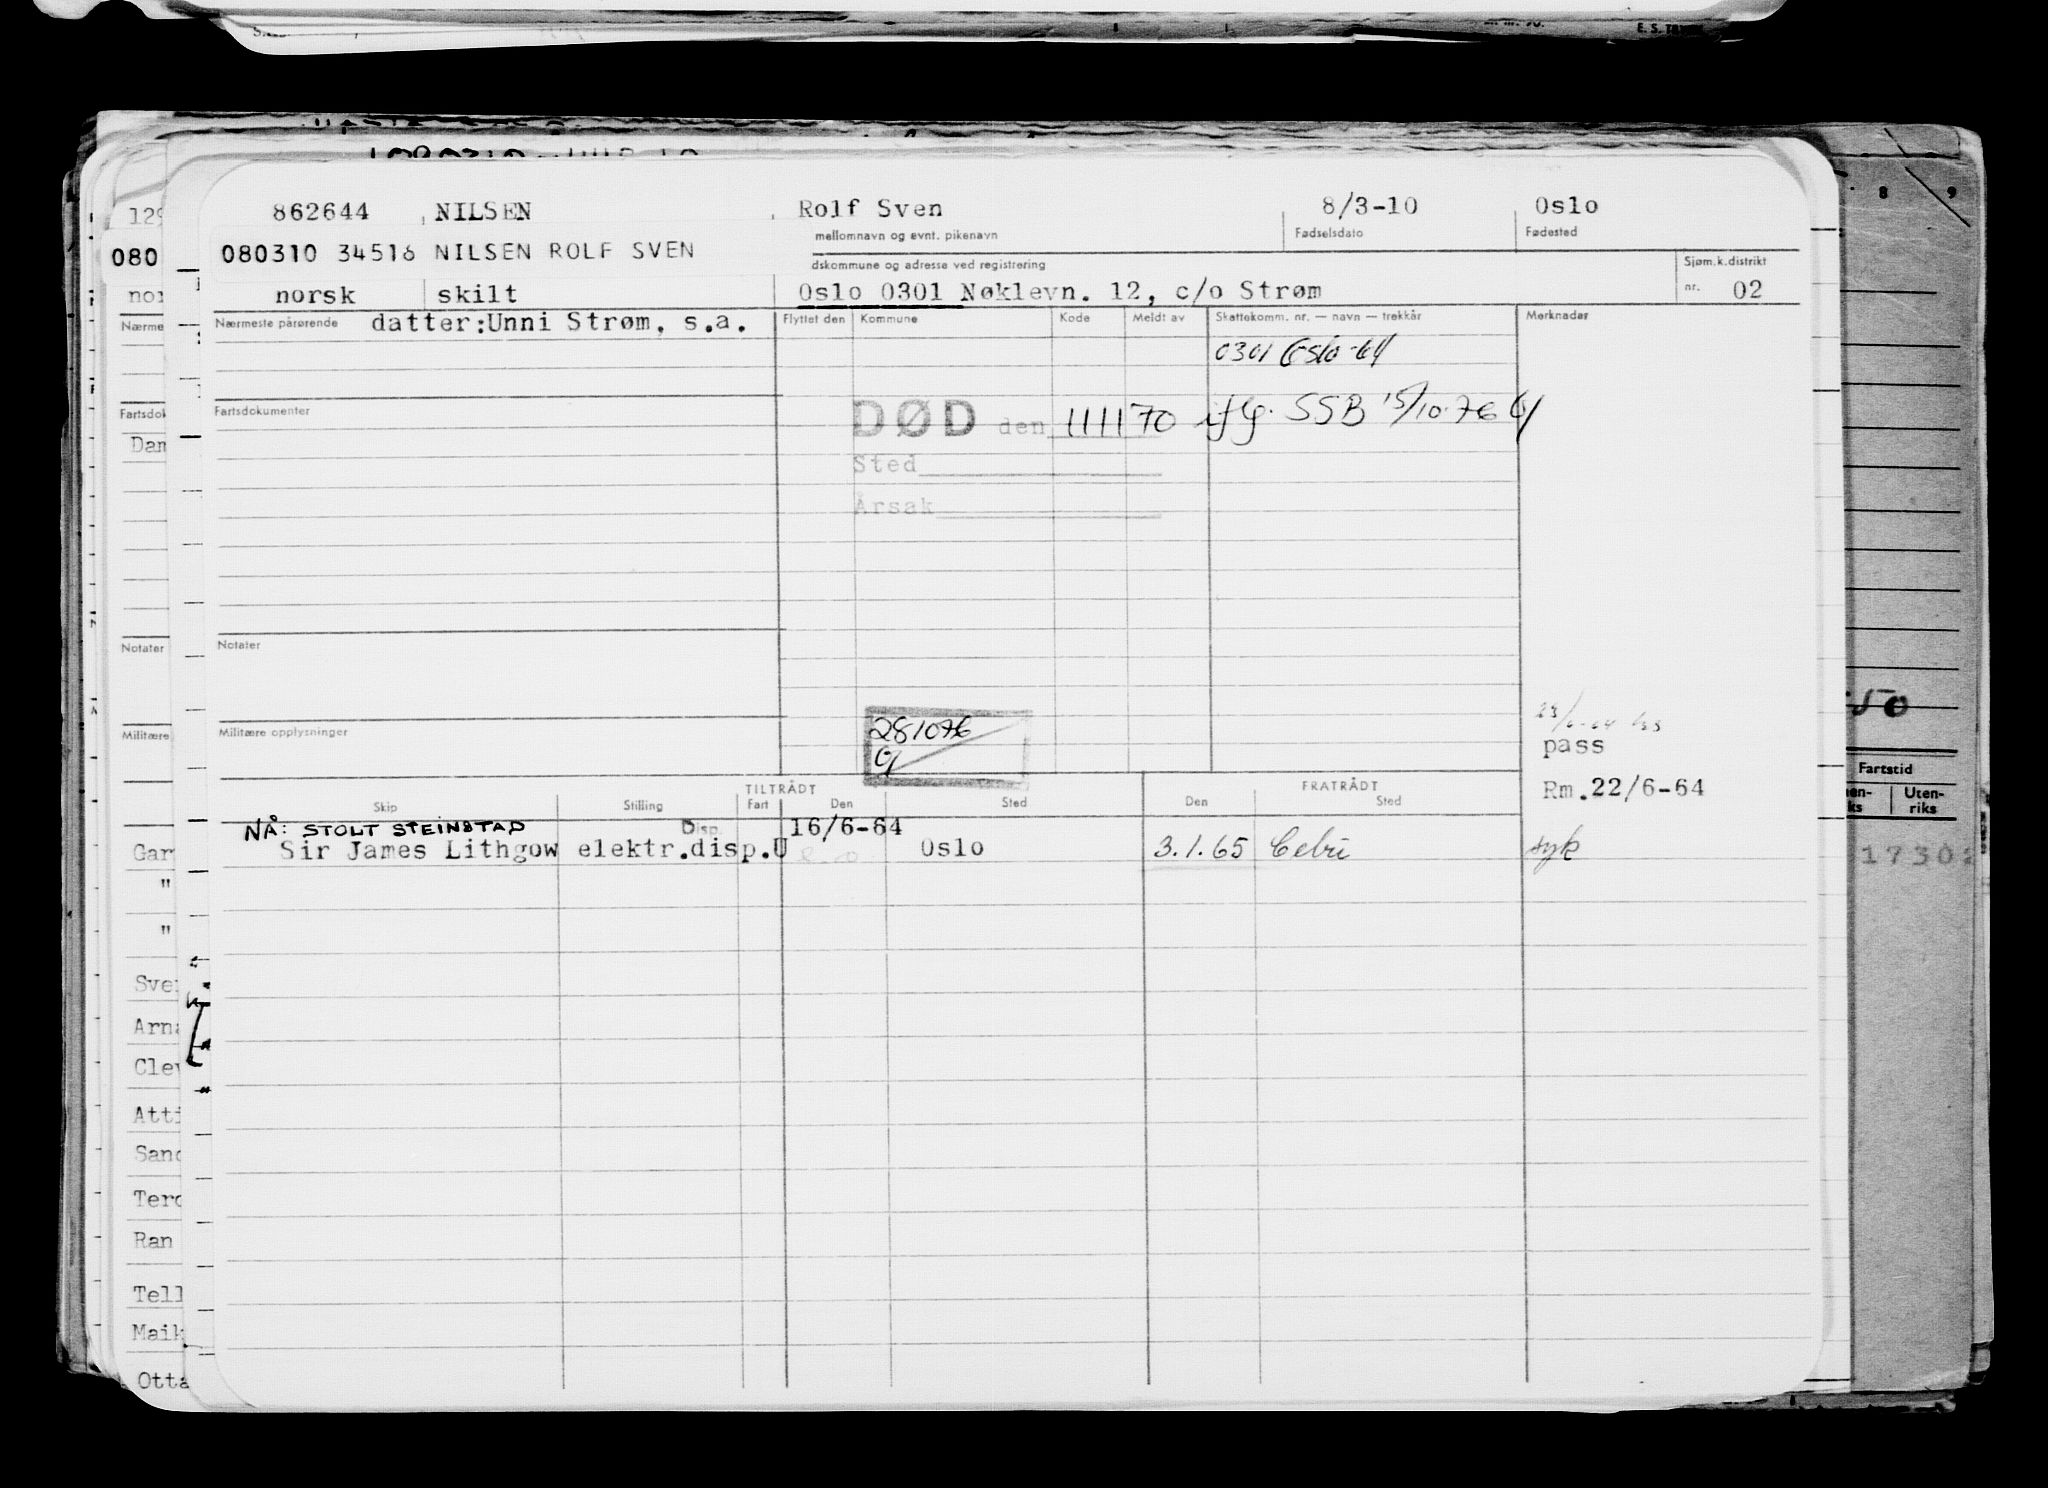 862644 NILSEN Rolf Sven 8/3-10 Oslo
mellomnavn og evnt. pikenavn Fødselsdato Fødested
080310 34516 NILSEN ROLF SVEN
dskommune og adresse ved registrering Sjøm.k.distrikt
norsk skilt Oslo 0301 Nøklevn. 12, c/o Strøm nr. 02
Nærmeste pårørende datter:Unni Strøm, s.a. Flyttet den Kommune Kode Meldt av Skattekomm. nr. — navn — trekkår Merknader
0301 Oslo -64
Fartsdokumenter
DØD den 111170 iflg. SSB 15/10.76
Sted
Årsak
Notater
Militære opplysninger
281076
pass
Rm.22/6-64
TILTRÅDT FRATRÅDT
Skip Stilling Fart Den Sted Den Sted
NÅ: STOLT STEINSTAD Disp. 16/6-64
Sir James Lithgow elektr.disp.U Oslo 3.1.65 Cebu syk
129
080
nor
Nærme
Fartsdok
Dan
Notater
Militære
Gar
"
"
Sve
Arna
Clev
Atti
Sand
Terd
Ran
Tell
Maik
Otta
8 9
50
Fartstid
Uten-
riks
17302